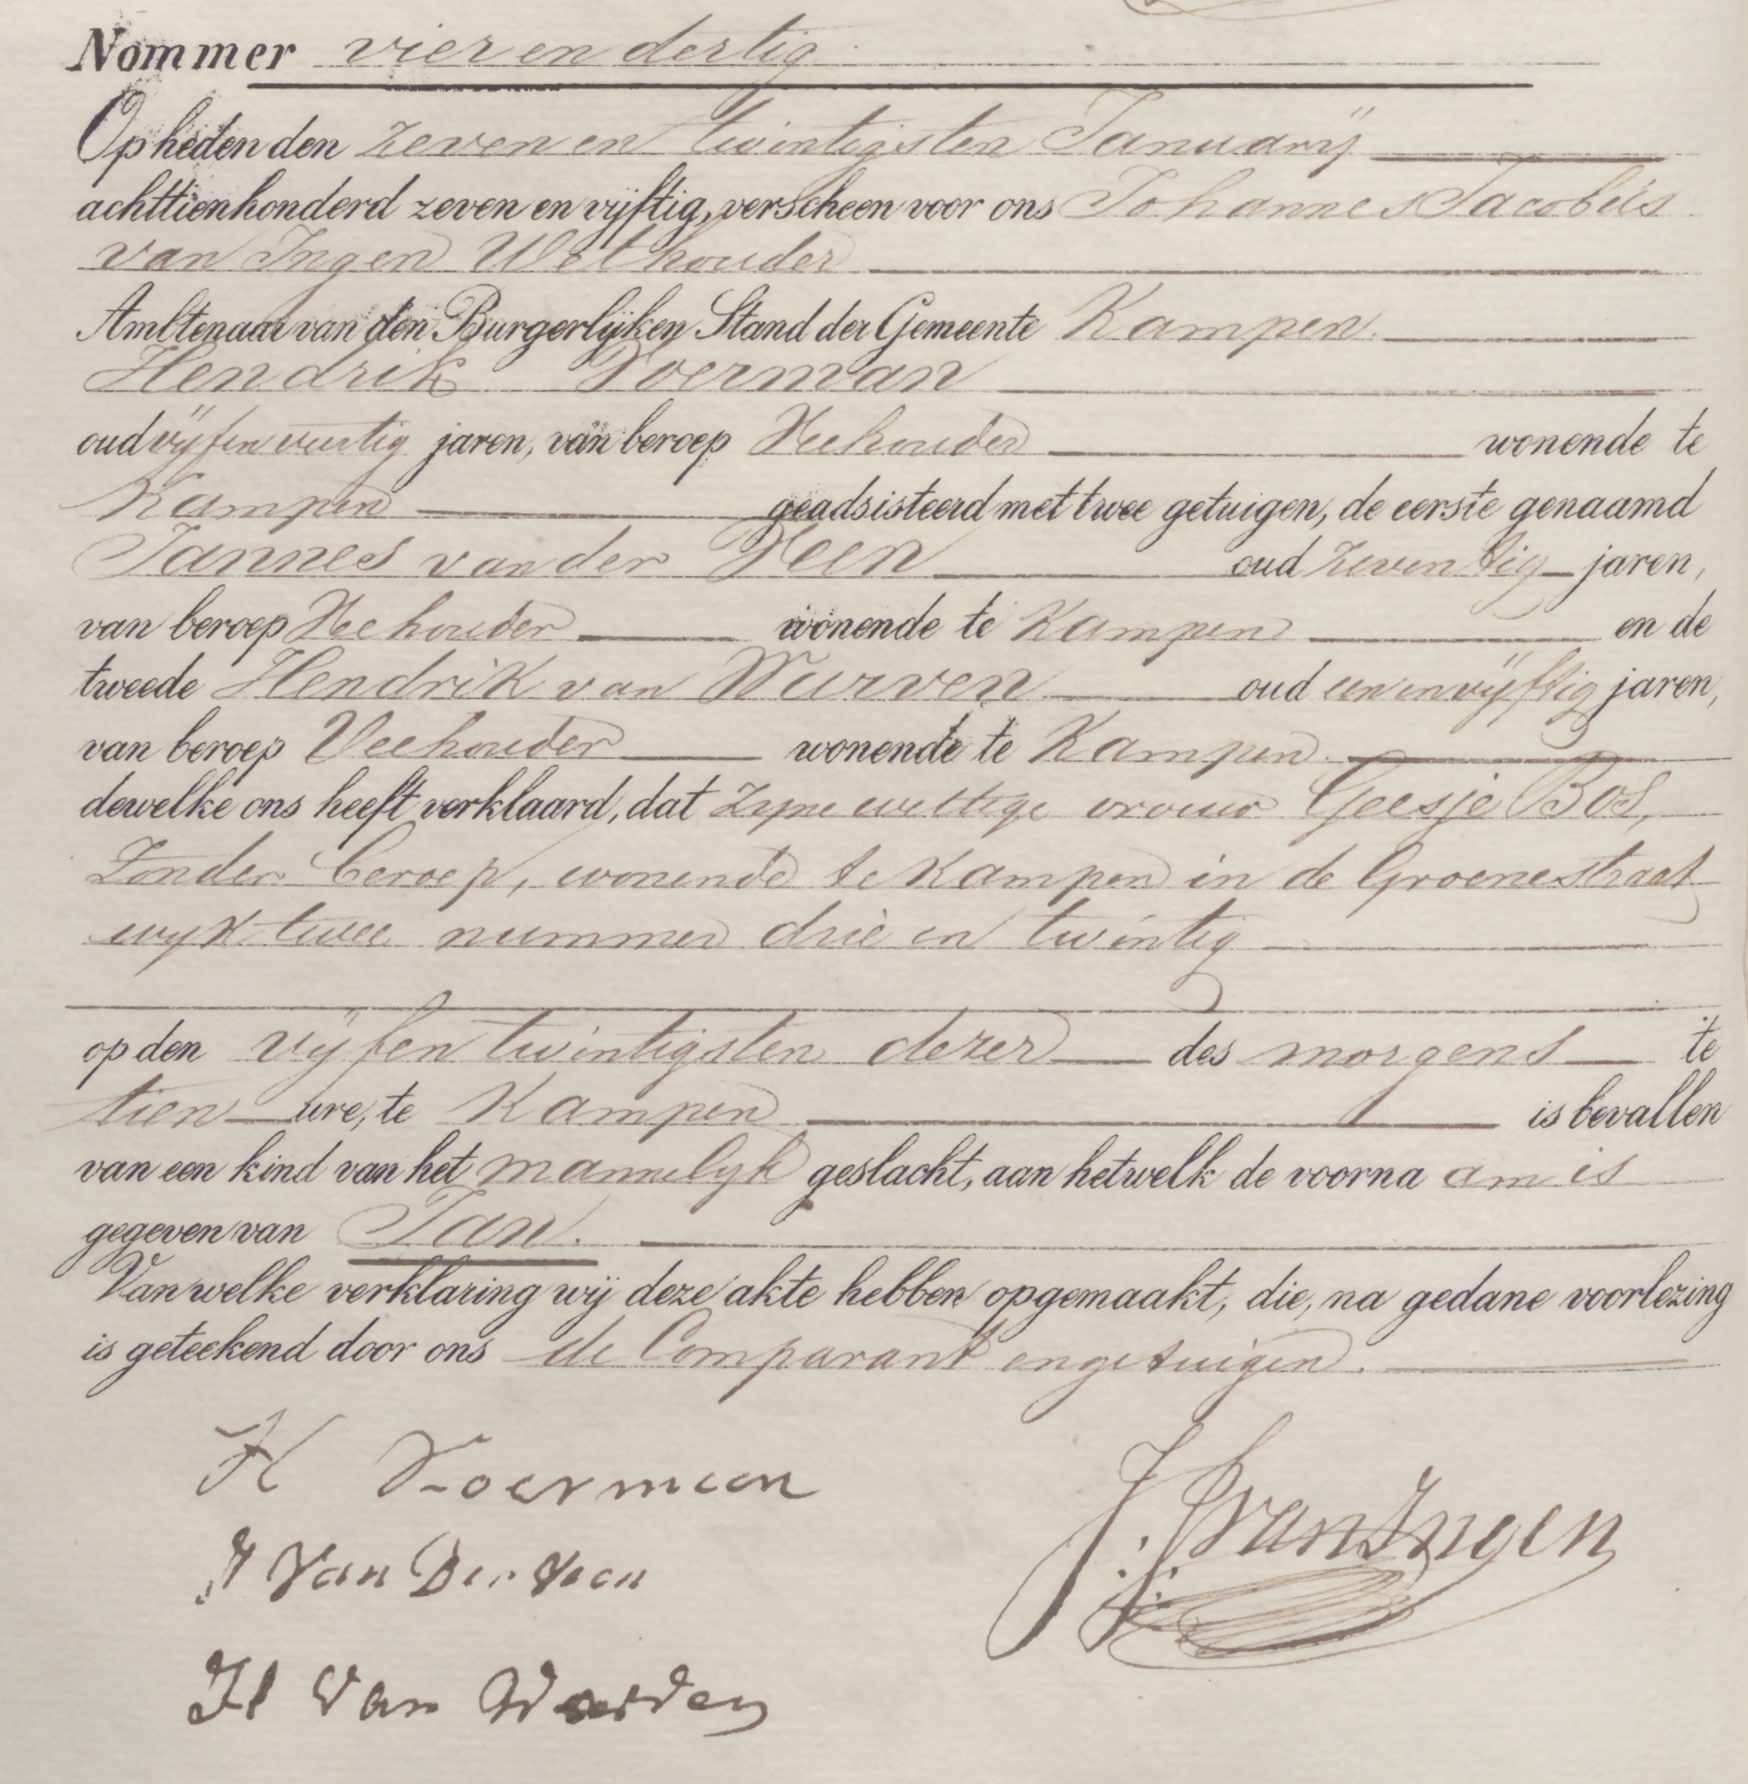 Nommer vier en dertig
Op heden den zeven en twintigsten Januarij
achttienhonderd zeven en vijftig, verscheen voor ons Johannes Jacobus
van Ingen Wethouder
Ambtenaar van den Burgerlijken Stand der Gemeente Kampen.
Hendrik Voerman
oud vijf en veertig jaren, van beroep Veehouder wonende te
Kampen geadsisteerd met twee getuigen, de eerste genaamd
Jannes van der Veen oud zeventig jaren,
van beroep Veehouder wonende te Kampen en de
tweede Hendrik van Wurven oud een en vijftig jaren,
van beroep Veehouder wonende te Kampen.
dewelke ons heeft verklaard, dat zijne wettige vrouw Geesje Bos,
Zonder beroep, wonende te Kampen in de Groenestraat
wijk twee nummer drie en twintig
op den vijf en twintigsten dezer des morgens te
tien ure, te Kampen is bevallen
van een kind van het mannelijk geslacht, aan hetwelk de voorna am is
gegeven van Jan.
Van welke verklaring wij deze akte hebben opgemaakt, die, na gedane voorlezing
is geteekend door ons de Comparant en getuigen.
H Voerman
J Van Der Veen
H Van Wurven
J: J: van Ingen